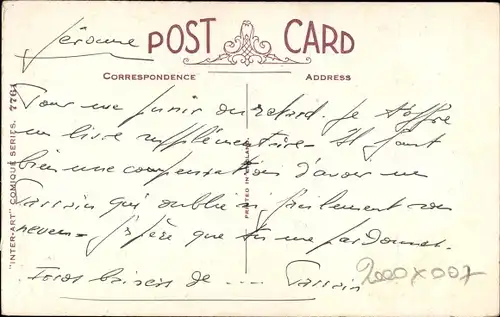 POST CARD
Jérôme
CORRESPONDENCE ADDRESS
Pour me punir du retard je t'offre
un livre supplémentaire - Il faut
bien une compensation d'avoir un
Parrain qui oublie si facilement son
neveu - J'espère que tu me pardonnes.
Gros baisers de .... Parrain
2000X007
"INTER-ART" COMIQUE SERIES. 7764
PRINTED IN ENGLAND